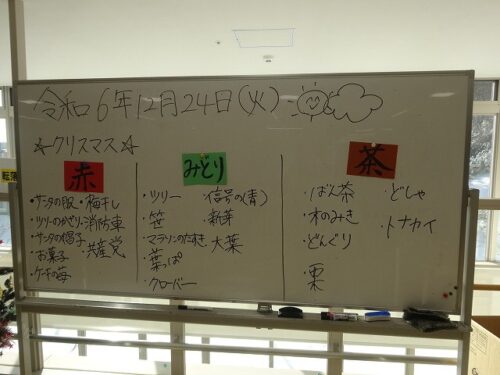 令和6年12月24日(火)
☆クリスマス☆
赤
・サンタの服
・ツリーのかざり
・サンタの帽子
・お菓子
・ケーキの苺
・梅干し
・消防車
・共産党
みどり
・ツリー
・笹
・マラソンのたすき
・葉っぱ
・クローバー
・信号(青)
・新芽
・大葉
茶
・ばん茶
・木のみき
・どんぐり
・栗
・どしゃ
・トナカイ